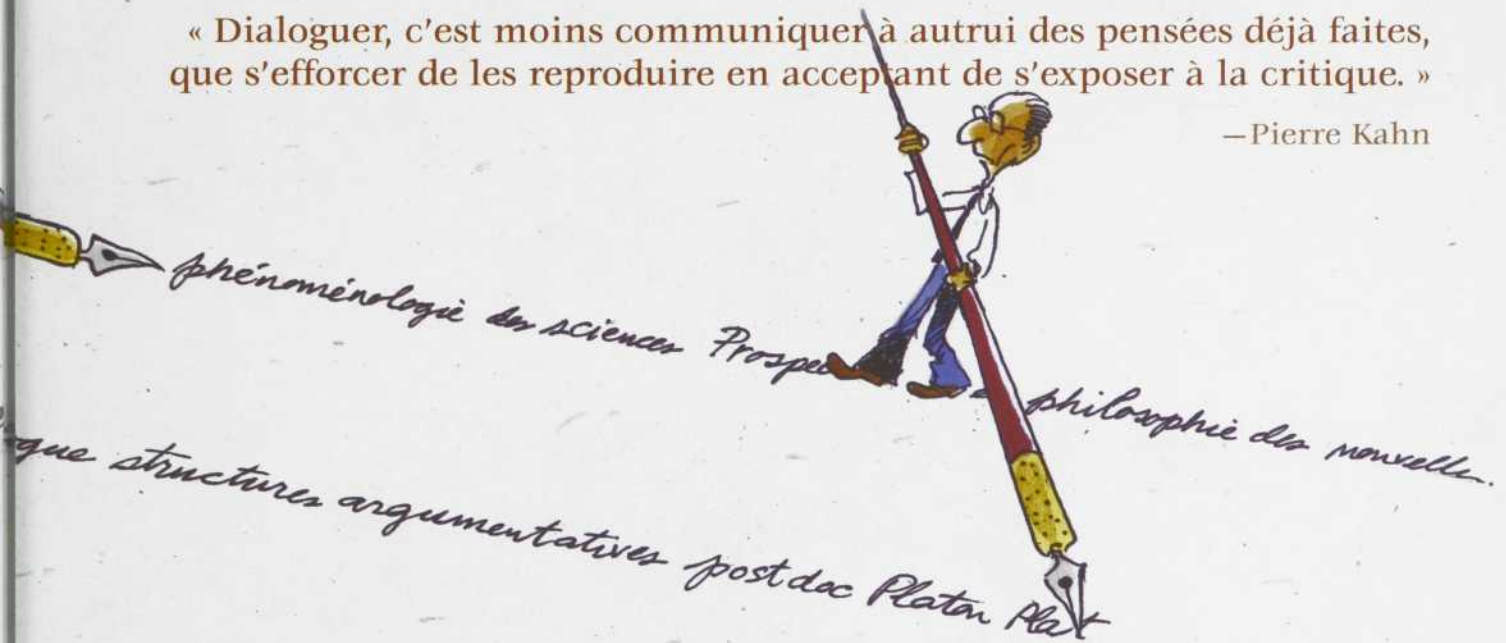 « Dialoguer, c'est moins communiquer à autrui des pensées déjà faites,
que s'efforcer de les reproduire en acceptant de s'exposer à la critique. »
—Pierre Kahn
phénoménologie des sciences Prospec philosophie des nouvelles
gue structures argumentatives postdoc Platon Plat